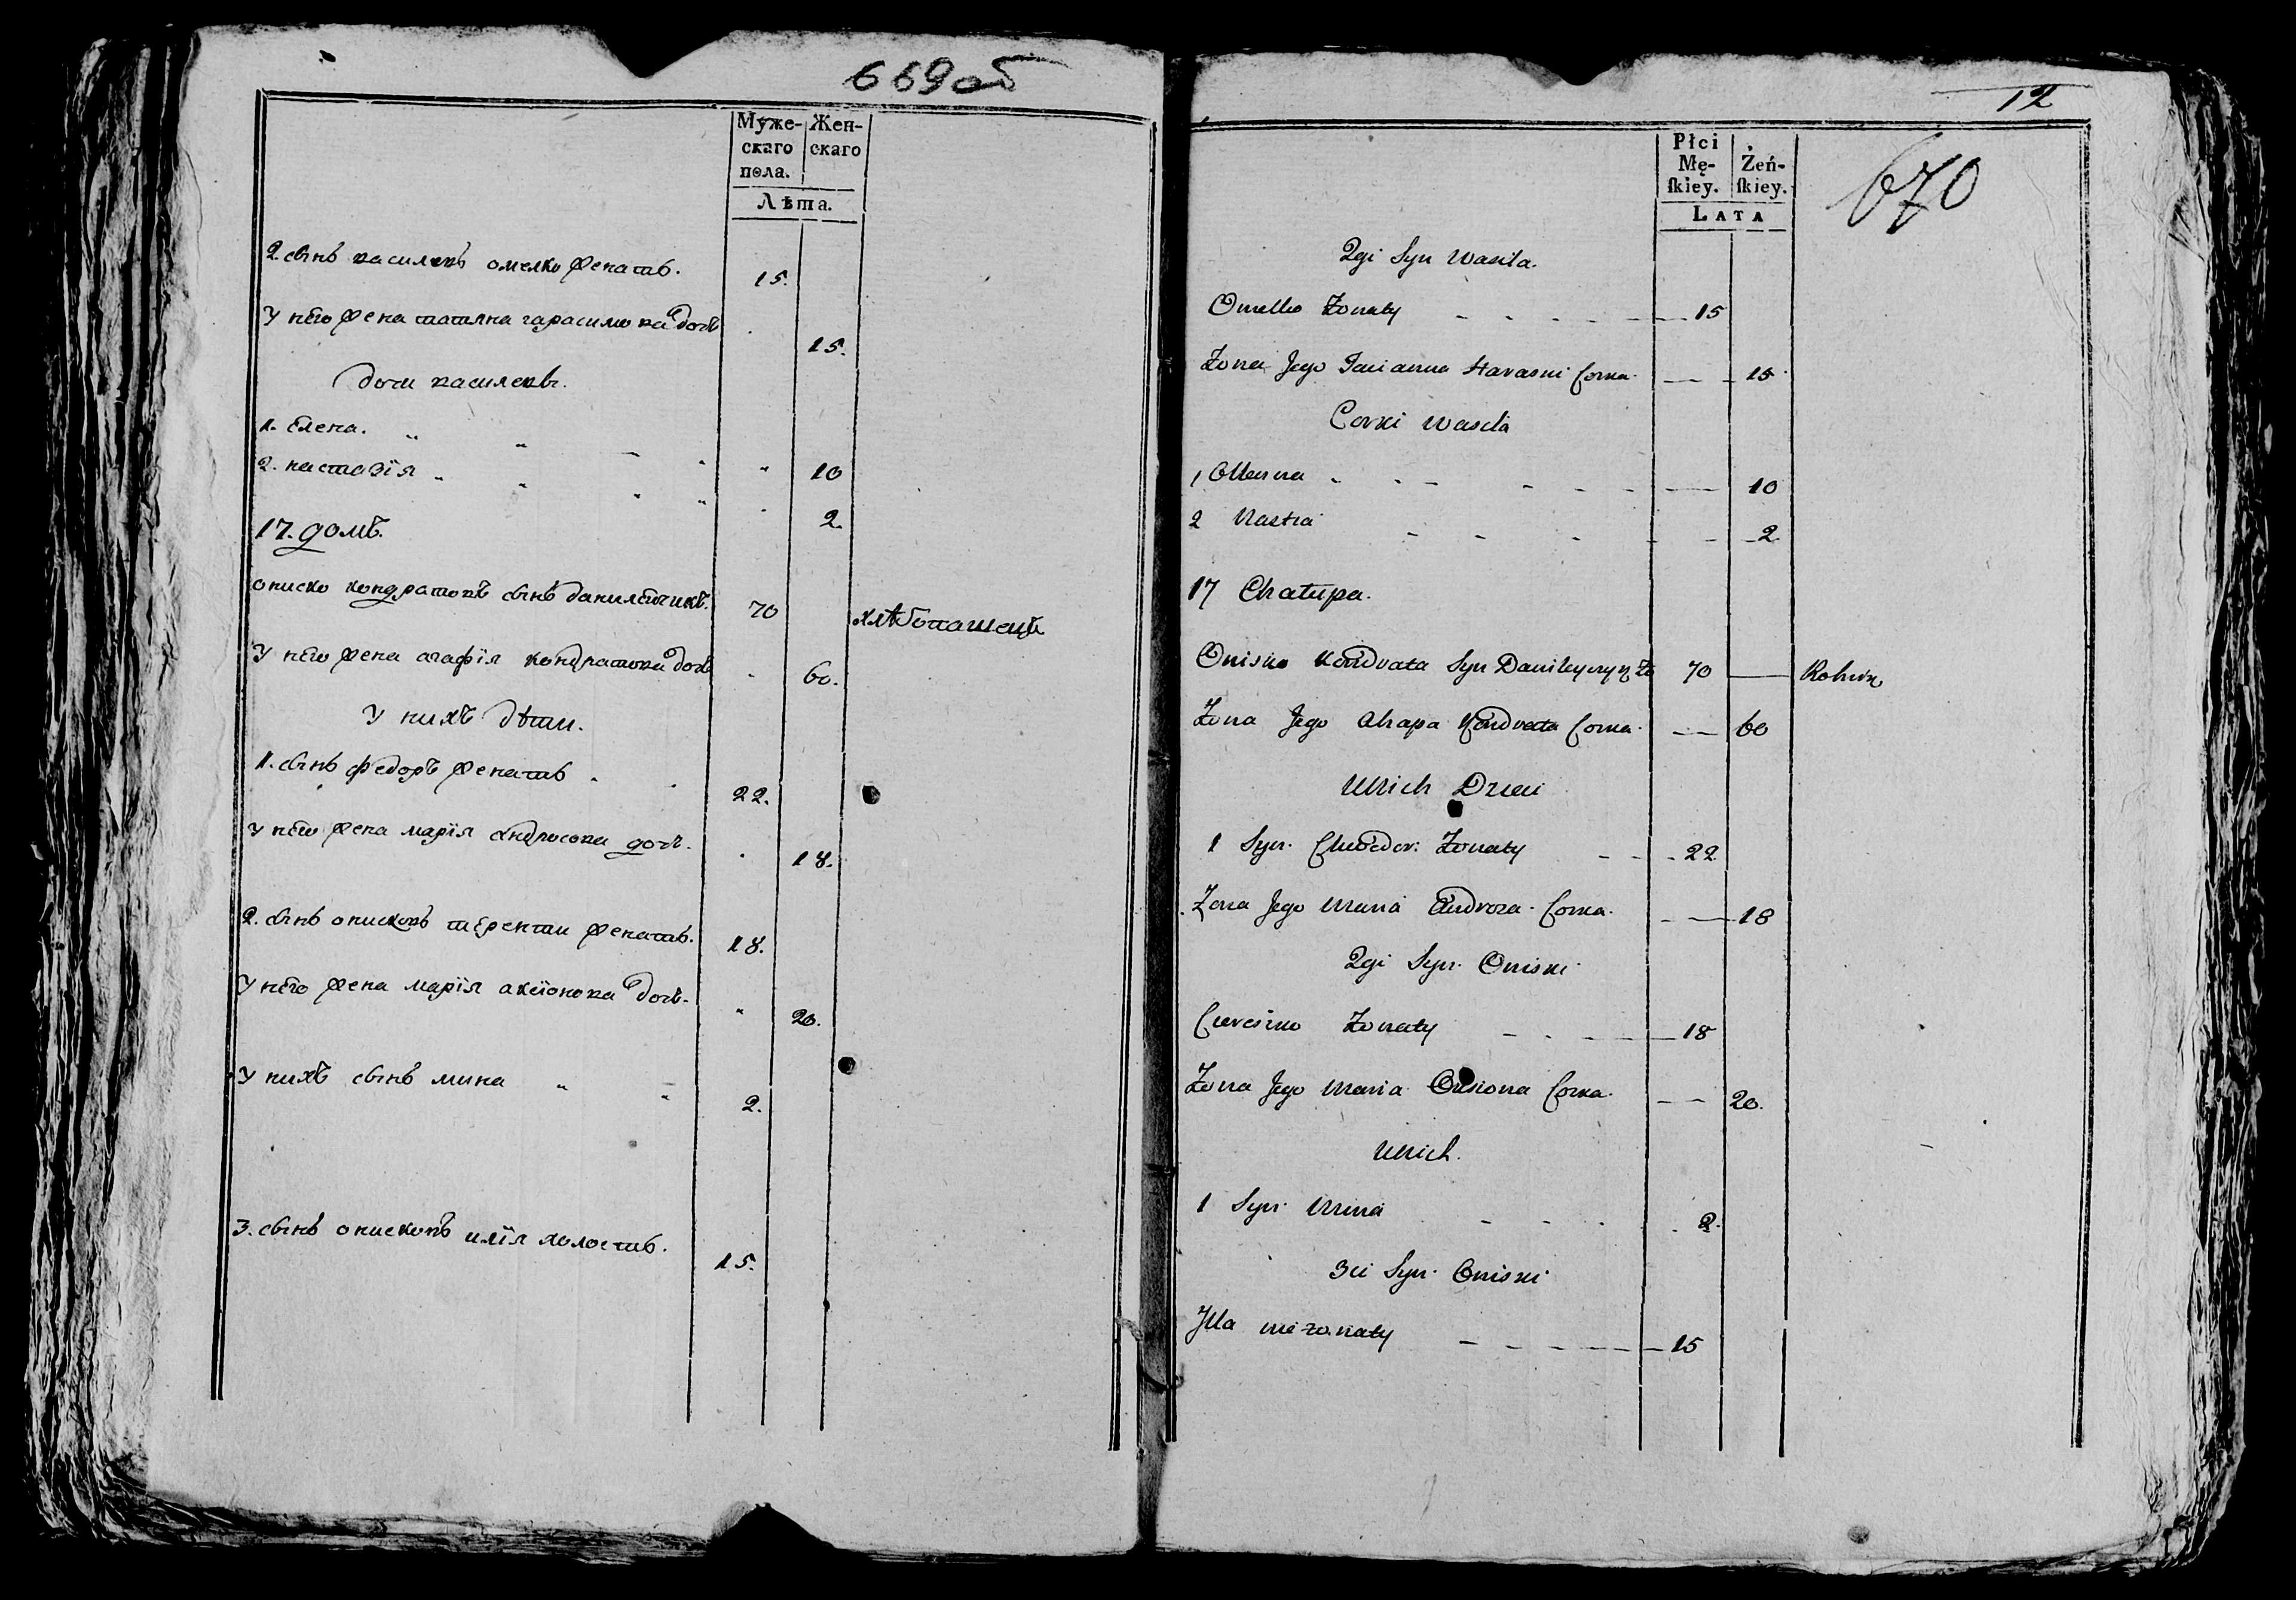 669об
Муже-
скаго
пола.
Жен-
скаго
Лѣта.
2. сынъ василевъ омелко женатъ. 15.
У него жена татяна гарасимова дочь 15.
дочи василевы.
1. Елена. 10
2. настазія 2.
17. домъ.
ониско кондратовъ сынъ данилейчикъ. 70 хлѣбопашецъ
У него жена агафія кондратова дочь 60.
У нихъ дѣти.
1. сынъ федоръ женатъ 22.
У него жена марія андросова дочь. 18.
2. сынъ онисковъ терентии женатъ. 18.
У него жена марія аксіонова дочь. 20.
У нихъ сынъ мина 2.
3. сынъ онисковъ илія холостъ. 15.
12
670
Płci
Mę-
ſkiey.
Żeń-
ſkiey.
LATA
2gi Syn Wasila.
Omelko Żonaty 15
Żona Jego Tacianna Harasui Corka 15
Corki Wasila
1 Ollenna 10
2 Nastia 2
17 Chałupa.
Onisko Kondrata Syn 70 Rolnik
Żona Jego Ahapa Kondrata Corka 60
U Nich Dzieci
1 Syn Chwedor Żonaty 22
Żona Jego Maria Androza Corka 18
2gi Syn Oniski
Żonaty 18
Żona Jego Maria Corka 20.
U Nich
1 Syn Mina 2
3ci Syn Oniski
Jlla nie żonaty 15